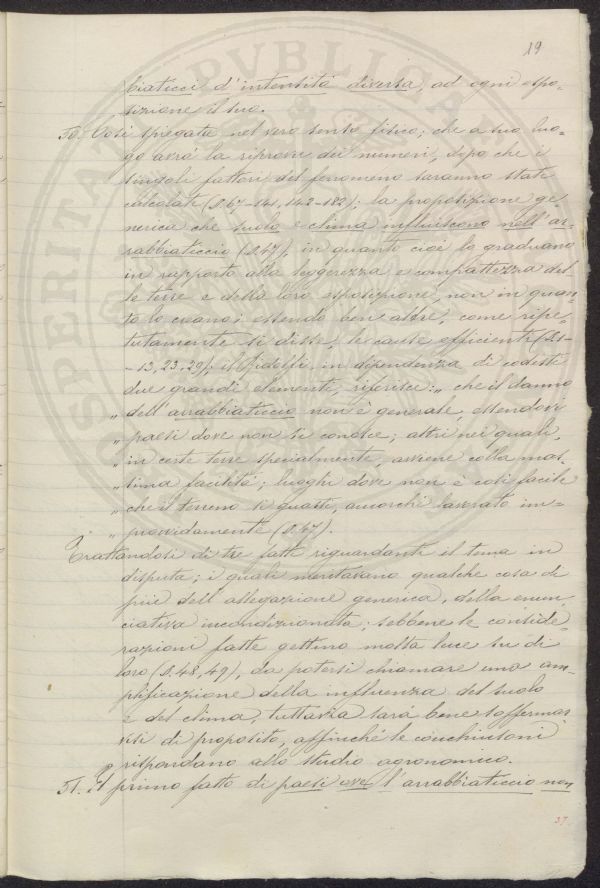 19
biaticci d'intensità diversa, ad ogni espo-
sizione il suo.
50. Così spiegata nel vero senso fisico; che a suo luo-
go avrà la riprova dei numeri, dopo che i
singoli fattori del fenomeno saranno stati
calcolati (§. 67-141, 142-182); la proposizione ge-
nerica che suolo e clima influiscono nell'ar-
rabbiaticcio (§. 47), in quanto cioè lo graduano
in rapporto alla leggerezza e compattezza del-
le terre e della loro esposizione, non in quan-
to lo creano; essendo ben altre, come ripe-
tutamente si disse, le cause efficienti (§.
-13, 23, 29), il Ridolfi, in dipendenza di codesti
due grandi elementi, riferisce: „ che il danno
„ dell'arrabbiaticcio non è generale, essendovi
„ paesi dove non si conosce; altri nei quali,
„ in certe terre specialmente, avviene colla mas-
„ sima facilità; luoghi dove non è così facile
„ che il terreno si guasti, ancorchè lavorato im-
„ provvidamente (§. 47).
Trattandosi di tre fatti riguardanti il tema in
disputa; i quali meritavano qualche cosa di
più dell'allegazione generica, della enun-
ciativa incondizionata; sebbene le conside-
razioni fatte gettino molta luce su di
loro (§. 48, 49), da potersi chiamare una am-
plificazione della influenza del suolo
e del clima, tuttavia sarà bene soffermar-
visi di proposito, affinchè le conchiusioni
rispondano allo studio agronomico.
51. Il primo fatto di paesi ove l'arrabbiaticcio non
37.